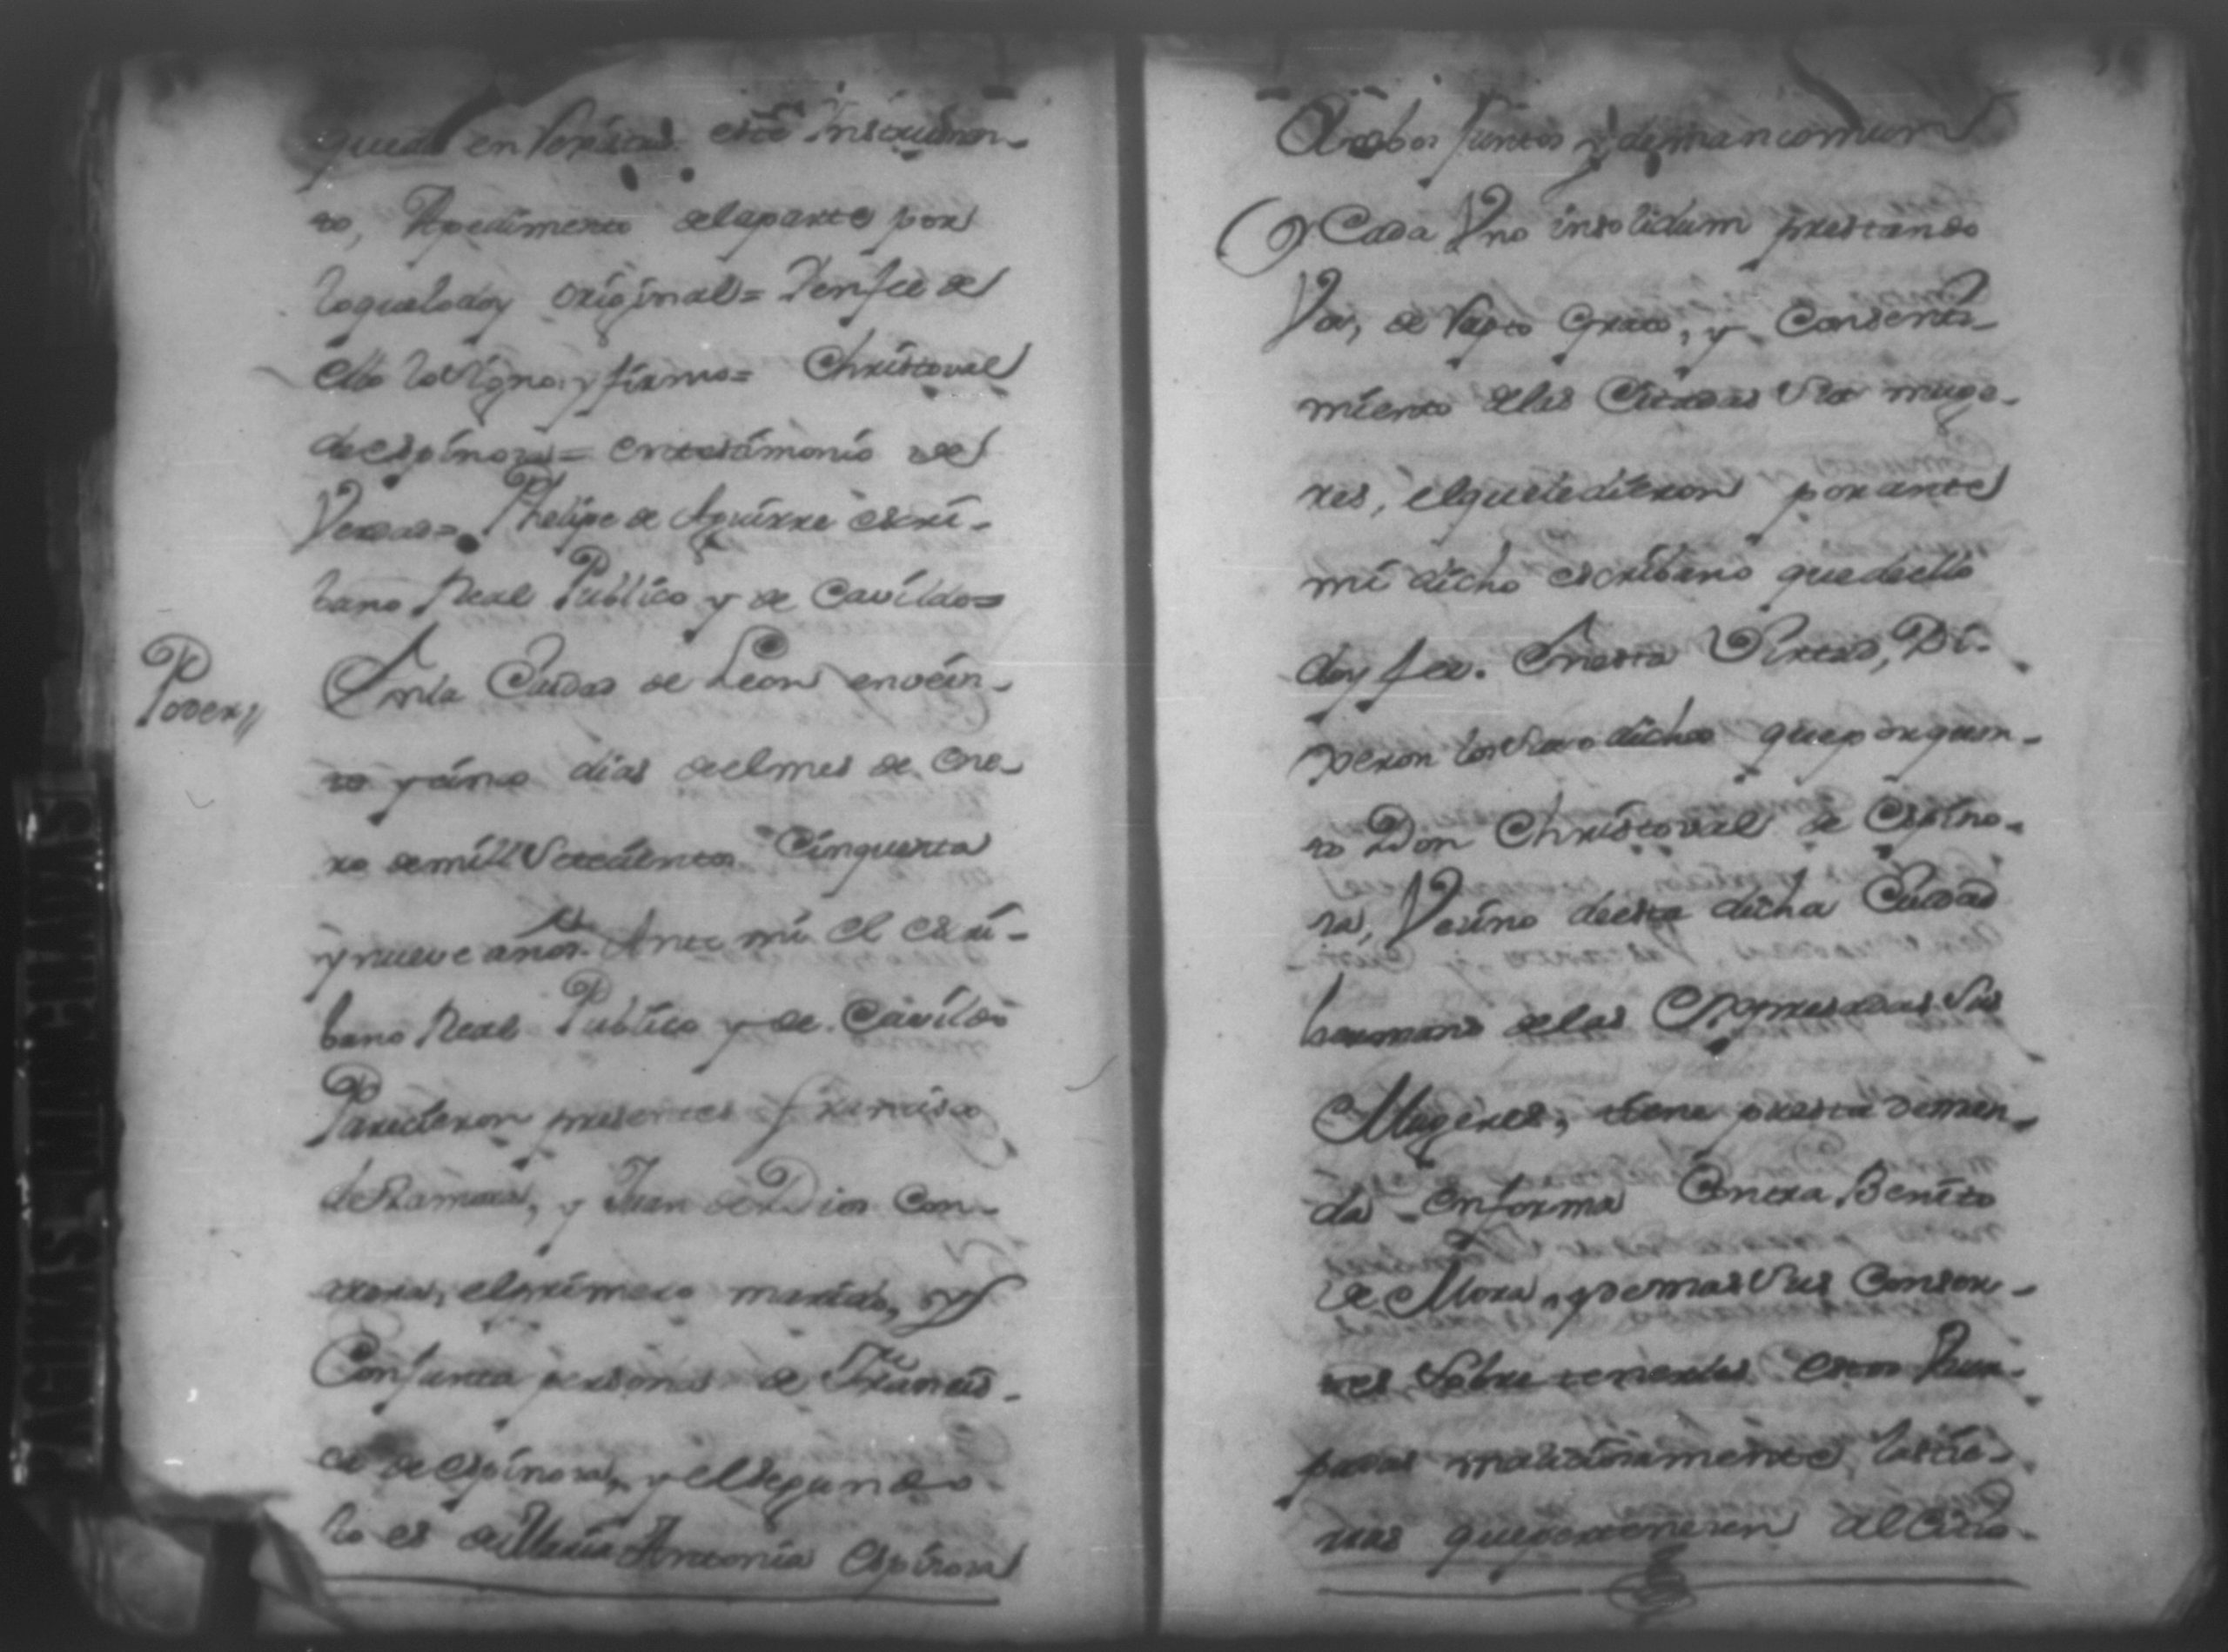 queda en Versas este Instrumen-
to, Apedimento delaparte por
loqualodoy original = Yenfee de
ello lo signo, y firmo = Christoval
de espinosa = entestimonio de
Verdad = Phelipe de Aguirre escri-
bano Real Publico y de Cavildo =
Poder,,
Enla Ciudad de Leon envein-
te y cinco dias delmes de ene-
ro demill Setecientos Cinquenta
y nueve años. Ante mi el escri-
bano Real Publico y de Cavildo
Parecieron presentes Francisco
de Ramos, y Juan de Dios Con-
trera, elprimero marido, y
Conjunta persona de Francis-
ca de espinosa, y elsegundo
lo es de Maria Antonia espinosa
Ambos Juntos y demancomun
y Cada Uno insolidum prestando
Vos, de Rapto Grato, y Consenti-
miento delas Citadas Sus muge-
res, elqueledieron por ante
mi dicho escribano quedeello
doy fee. Enesta Virtud, Di-
xeron los Suso dichos queporquan-
to Don Christoval de Espino-
sa, Vecino deesta dicha Ciudad
hermano delas Expresadas Sus
Mugeres, tiene puesta deman-
da enforma Contra Benito
de Mora, y demas Sus Consor-
tes Sobre tenerlas estos Usur-
padas maliciosamente, lastie-
rras quepertenecen al Citio